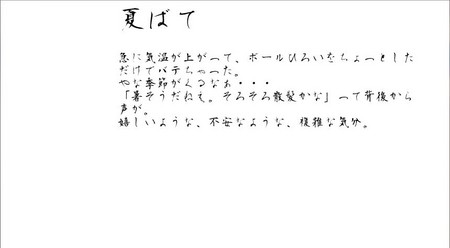 夏ばて
急に気温が上がって、ボールひろいをちょっとした
だけでバテちゃった。
やな季節がくるなぁ・・・
「暑そうだねぇ。そろそろ散髪かな」って背後から
声が。
嬉しいような、不安なような、複雑な気分。